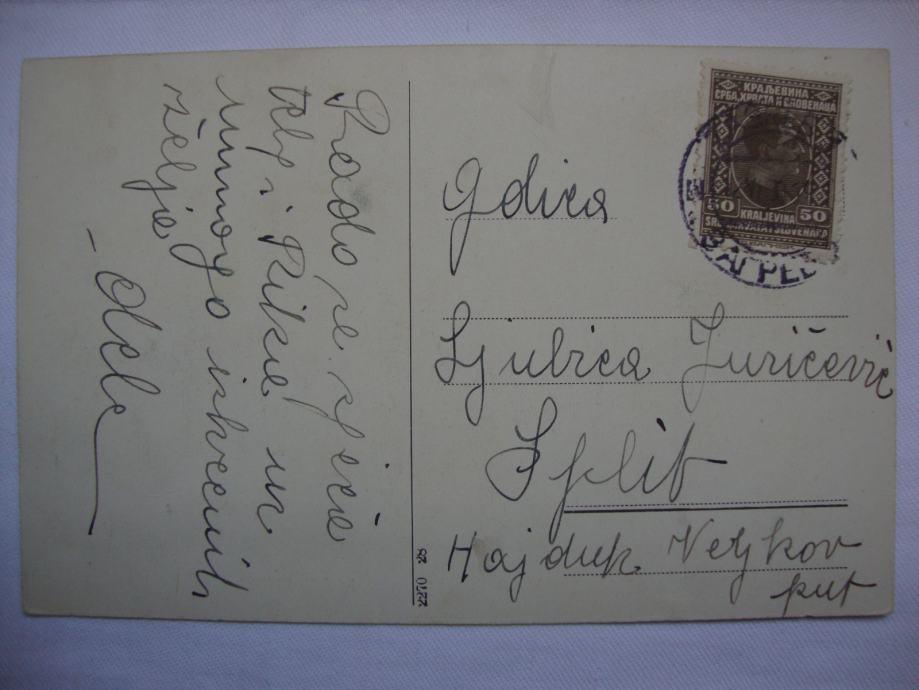 Rado se sjeća
i Rike uz
mnogo iskrenih
želja
КРАЉЕВИНА
СРБА, ХРВАТА И СЛОВЕНАЦА
50 KRALJEVINA 50
SRBA, HRVATA I SLOVENACA
Gdica
Ljubica Juričević
Split
Hajduk Veljkov
put
2270 28